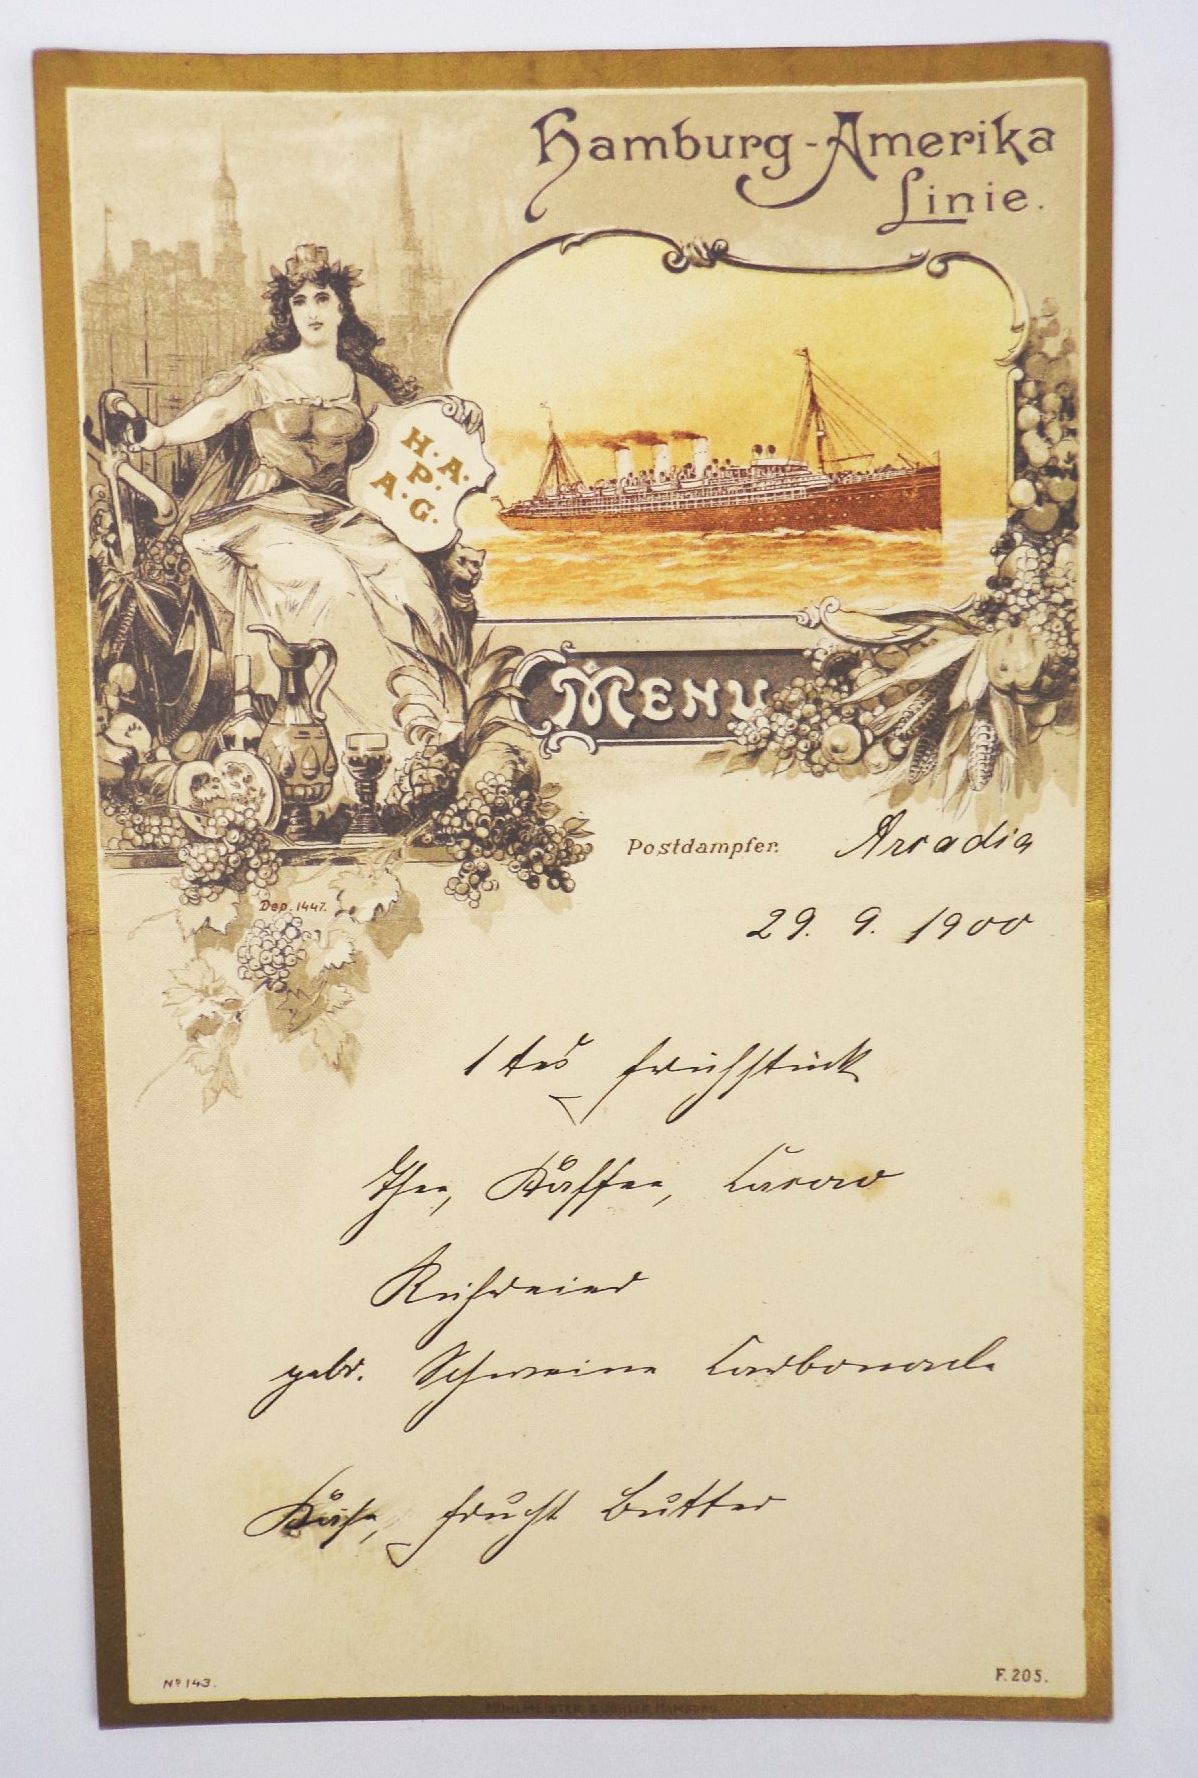 Hamburg-Amerika
Linie.
H. A.
P.
A. G.
MENU
Postdampfer. Arcadia
Dep. 1447.
29. 9. 1900
1tes Frühstück
Thee, Kaffee, Cacao
Rühreier
gebr. Schweine Carbonade
Käse, Frucht Butter
Nº 143.
F. 205.